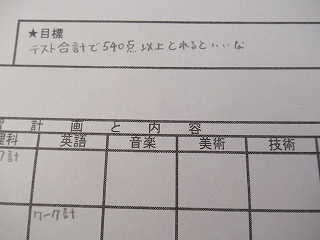 ★目標
テスト合計で540点以上とれるといいな
計画と内容
理科 英語 音楽 美術 技術
ワーク計